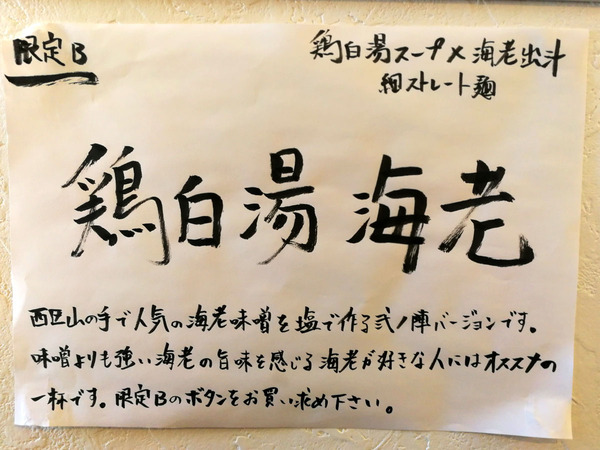 限定B
鶏白湯スープ×海老出汁
細ストレート麺
鶏白湯 海老
西区山の手で人気の海老味噌を塩で作る弐ノ陣バージョンです。
味噌よりも強い海老の旨味を感じる海老が好きな人にはオススメの
一杯です。限定Bのボタンをお買い求め下さい。